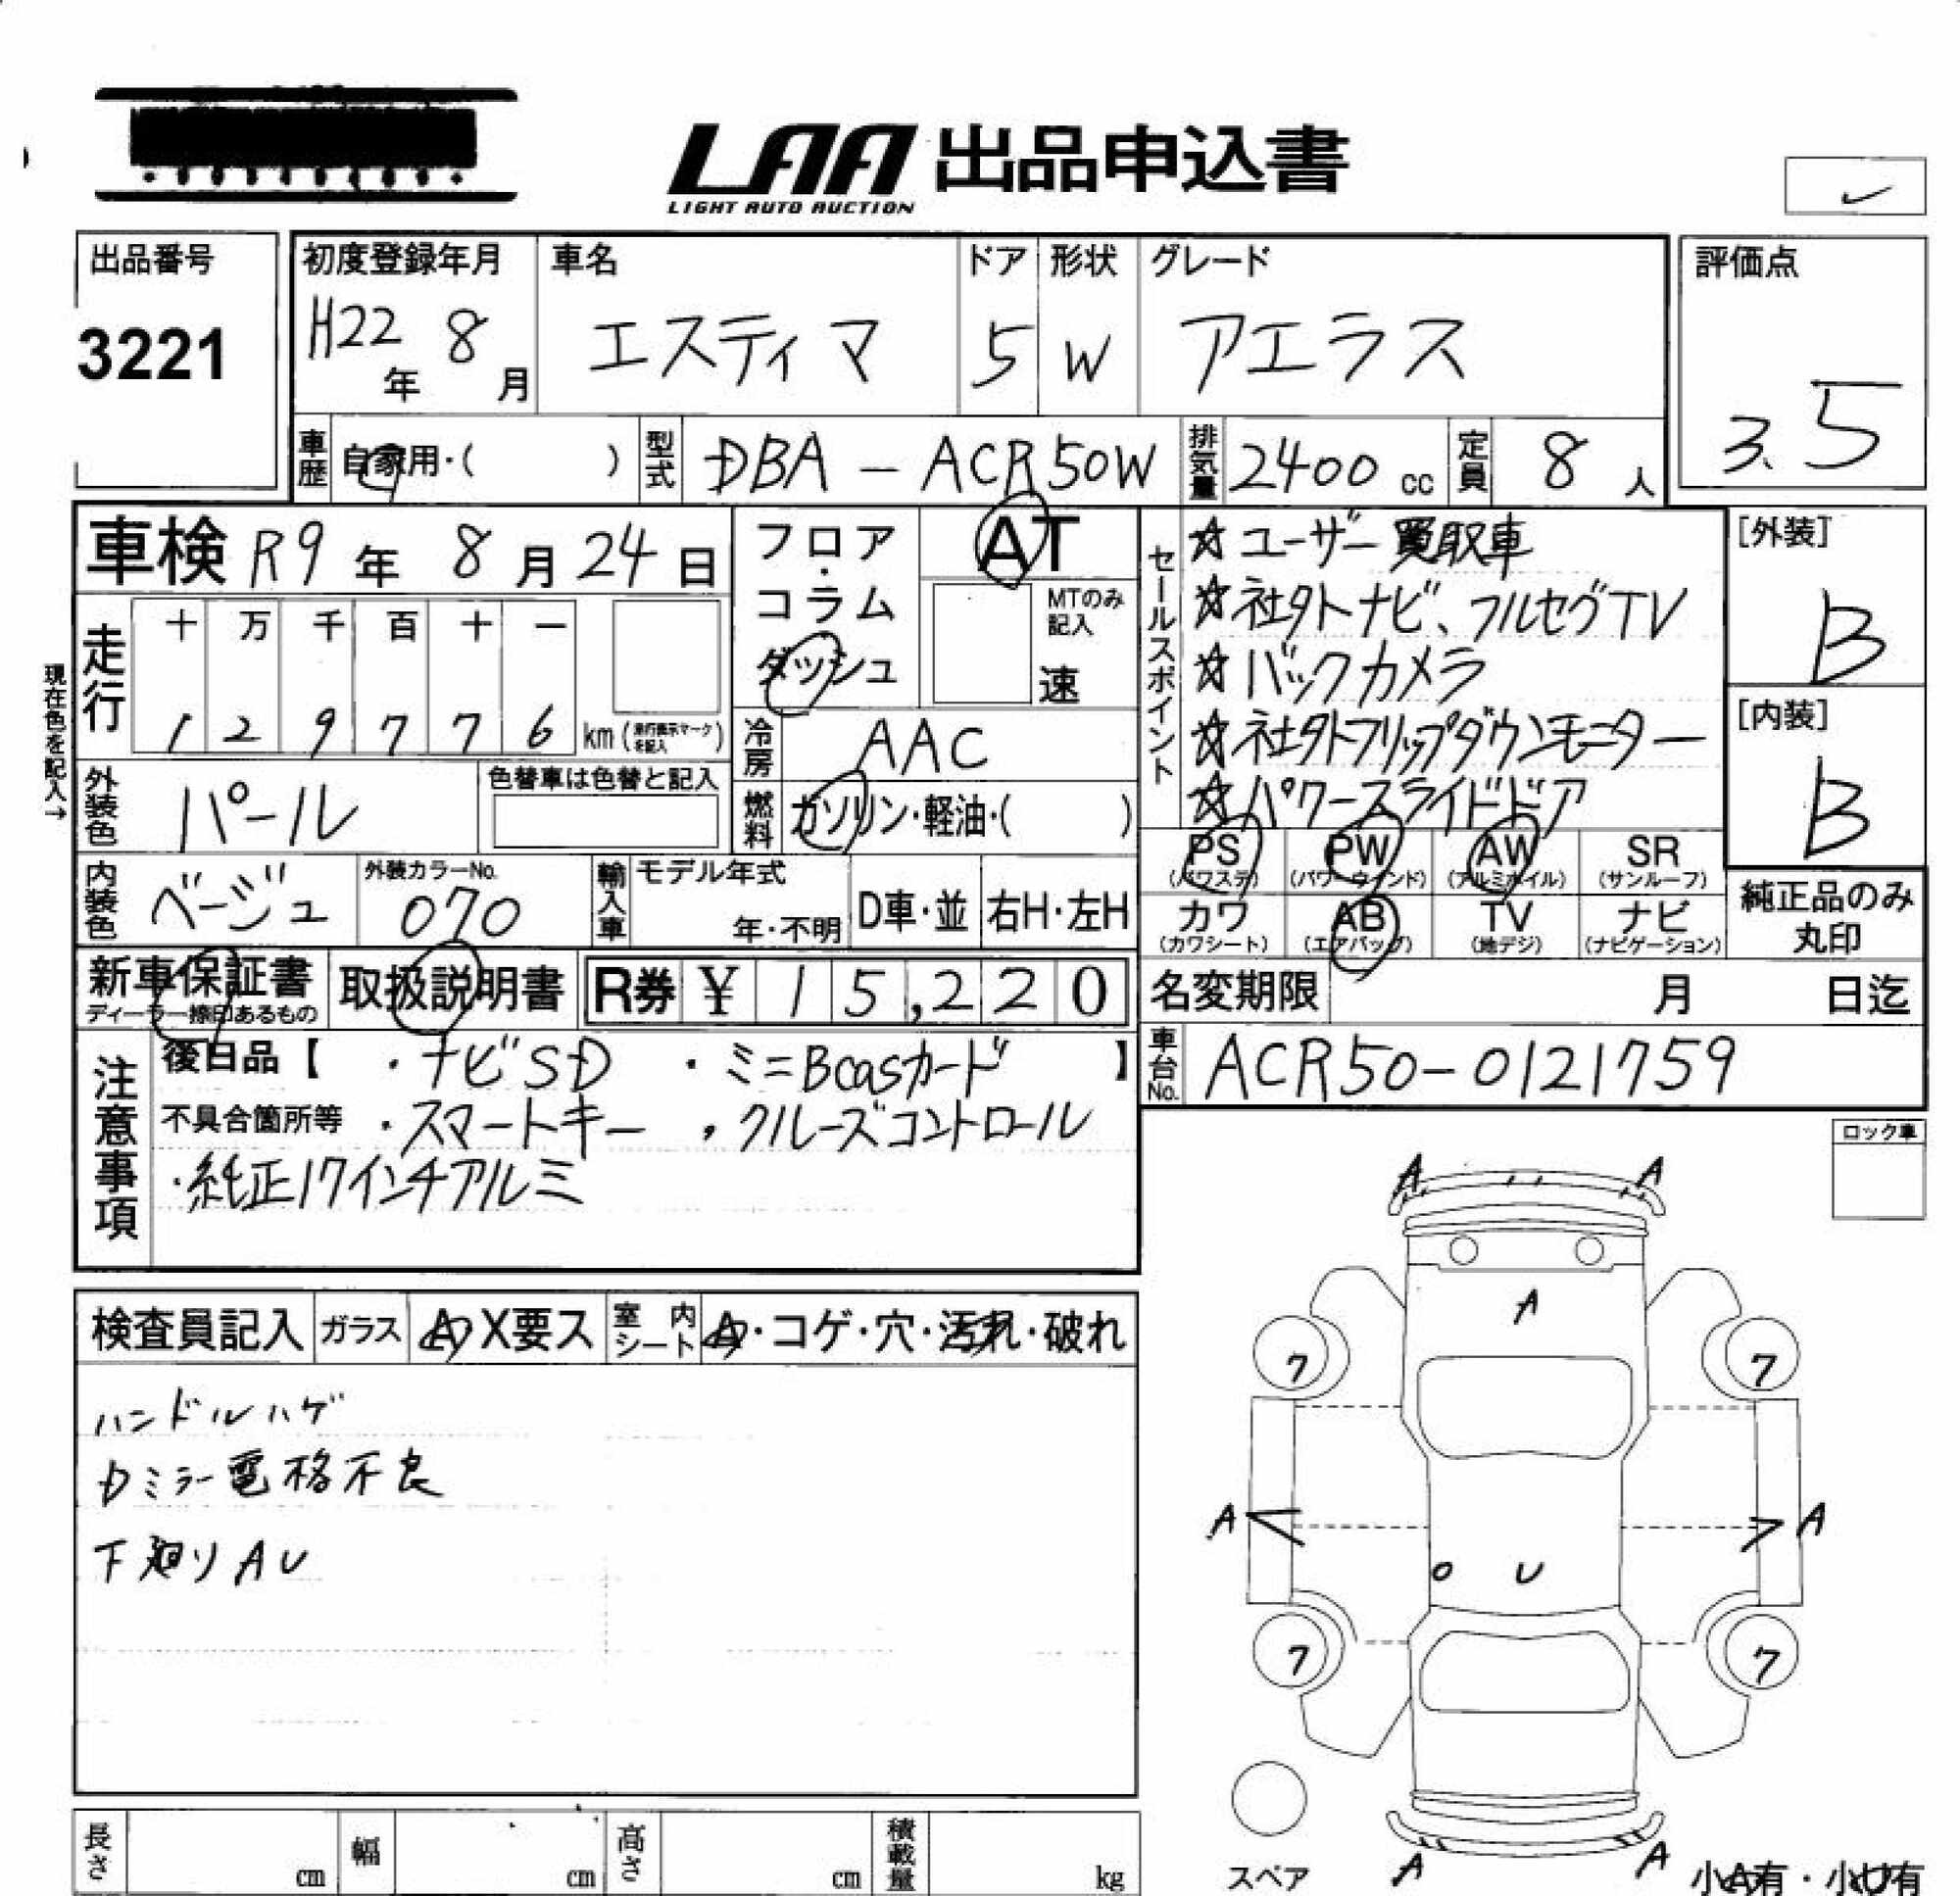 LAA 出品申込書
LIGHT AUTO AUCTION
出品番号
3221
初度登録年月
H22年 8月
車名
エスティマ
ドア
5
形状
W
グレード
アエラス
評価点
3.5
車歴 自家用・( )
型式 DBA-ACR50W
排気量 2400 cc
定員 8人
車検 R9年 8月24日
走行
十 万 千 百 十 一
1 2 9 7 7 6 km (走行表示マークを記入)
現在色を記入→
外装色 パール
色替車は色替と記入
内装色 ベージュ
外装カラーNo.
070
輸入車
モデル年式
年・不明
D車・並
右H・左H
フロア・コラム
ダッシュ
AT
MTのみ記入
速
冷房 AAC
燃料 ガソリン・軽油・( )
セールスポイント
☆ユーザー買取車
☆社外ナビ、フルセグTV
☆バックカメラ
☆社外フリップダウンモニター
☆パワースライドドア
[外装]
B
[内装]
B
PS (パワステ)
PW (パワーウインド)
AW (アルミホイル)
SR (サンルーフ)
カワ (カワシート)
AB (エアバッグ)
TV (地デジ)
ナビ (ナビゲーション)
純正品のみ丸印
新車保証書
ディーラー捺印あるもの
取扱説明書
R券 ¥ 15,220
名変期限 月 日迄
車台No. ACR50-0121759
注意事項
後日品【 ・ナビSD ・ミニBcasカード 】
不具合箇所等 ・スマートキー ・クルーズコントロール
・純正17インチアルミ
ロック車
検査員記入
ガラス A X要ス
室内シート A・コゲ・穴・汚れ・破れ
ハンドルハゲ
Dミラー電格不良
下廻りAU
A A
A
7 7
A A
U
7 7
A A
スペア
小A有・小U有
長さ cm
幅 cm
高さ cm
積載量 kg